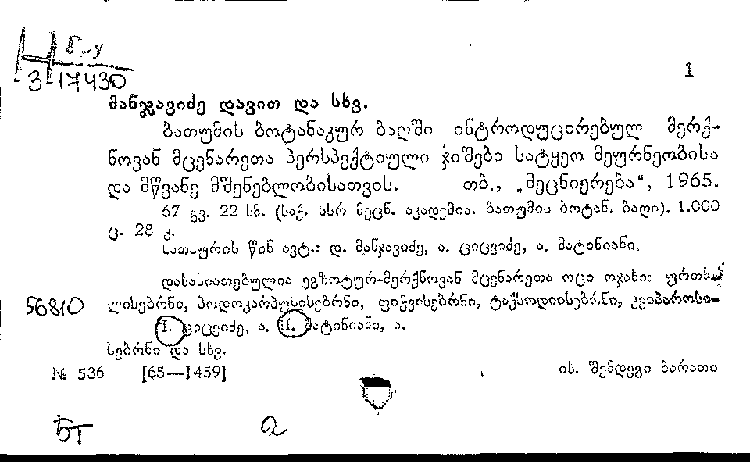 3 17430
1
მანჯავიძე დავით და სხვ.
ბათუმის ბოტანაკურ ბაღში ინტროდუცირებულ მერქ-
ნოვან მცენარეთა პერსპექტიული ჯიშები სატყეო მეურნეობისა
და მწვანე მშენებლობისათვის. თბ., „მეცნიერება“, 1965.
67 გვ. 22 სმ. (საქ. სსრ მეცნ. აკადემია. ბათუმის ბოტან. ბაღი). 1.000
ც. 28 კ.
სათაურის წინ ავტ.: დ. მანჯავიძე, ა. ციცვიძე, ა. მატინიანი.
დახასიათებულია ეგზოტურ-მერქნოვან მცენარეთა ოცი ოჯახი:
56810 ლისებრნი, პოდოკარპუსისებრნი, ფიჭვისებრნი, ტაქსოდიისებრნი, კვიპაროსი-
I. ციცვიძე, ა. II. მატინიანი, ა.
სებრნი და სხვ.
№ 536 [65—1459] იხ. შემდეგი ბარათი